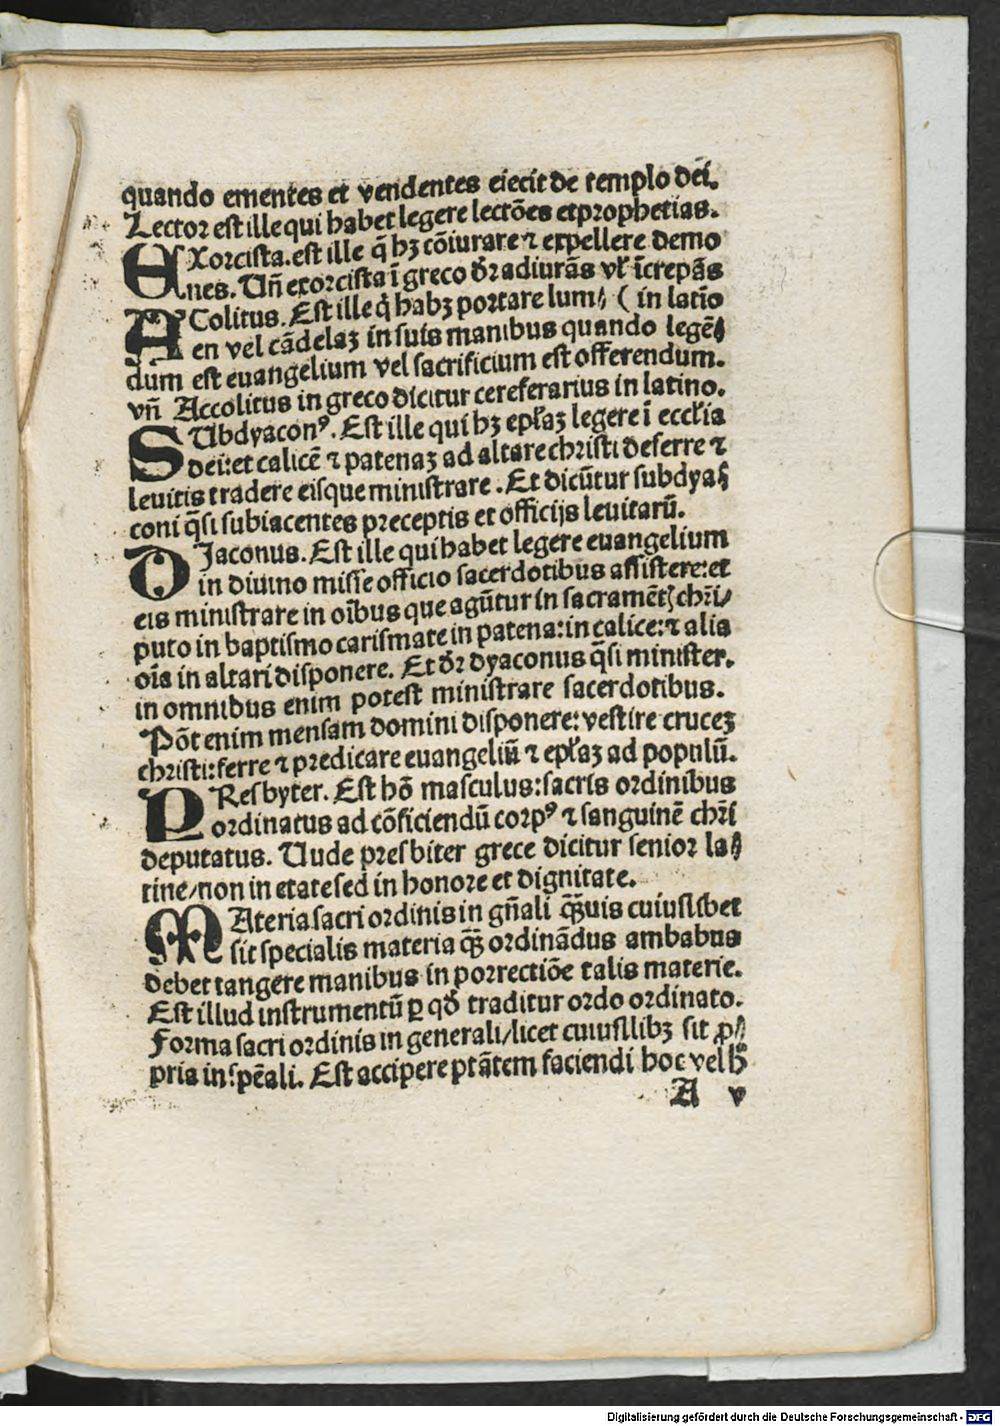 quando ementes et vendentes eiecit de templo dei.
Lector est ille qui habet legere lectões et prophetias.
EXorcista. est ille q̃ hꝫ cõiurare ⁊ expellere demo
nes. Uñ exorcista ĩ greco dr̃ adiurãs vł ĩcrepãs
AColitus. Est ille q̃ habꝫ portare lum⸗ ( in latĩo
en vel cãdelaꝫ in suis manibus quando legẽ⸗
dum est euangelium vel sacrificium est offerendum.
vñ Accolitus in greco dicitur cereferarius in latino.
SUbdyaconꝰ. Est ille qui hꝫ epłaꝫ legere ĩ eccłia
dei: et calicẽ ⁊ patenaꝫ ad altare christi deferre ⁊
leuitis tradere eisque ministrare. Et dicũtur subdya⸗
coni q̃si subiacentes preceptis et officijs leuitarũ.
DJaconus. Est ille qui habet legere euangelium
in diuino misse officio sacerdotibus assistere: et
eis ministrare in oĩbus que agũtur in sacramẽtꝭ chr̃i/
puto in baptismo carismate in patena: in calice: ⁊ alia
oĩa in altari disponere. Et dr̃ dyaconus q̃si minister.
in omnibus enim potest ministrare sacerdotibus.
Põt enim mensam domini disponere: vestire cruceꝫ
christi: ferre ⁊ predicare euangeliũ ⁊ epłaꝫ ad populũ.
PResbyter. Est hõ masculus: sacris ordinibus
ordinatus ad cõficiendũ corpꝰ ⁊ sanguinẽ chr̃i
deputatus. Uude presbiter grece dicitur senior la⸗
tine/non in etate sed in honore et dignitate.
MAteria sacri ordinis in gñali qꝫuis cuiuslibet
sit specialis materia qꝫ ordinãdus ambabus
debet tangere manibus in porrectiõe talis materie.
Est illud instrumentũ ꝑ qd̃ traditur ordo ordinato.
Forma sacri ordinis in generali/licet cuiusllibꝫ sit ꝓ⸗
pria in spẽali. Est accipere ptãtem faciendi hoc vel h̃
A v
Digitalisierung gefördert durch die Deutsche Forschungsgemeinschaft - DFG